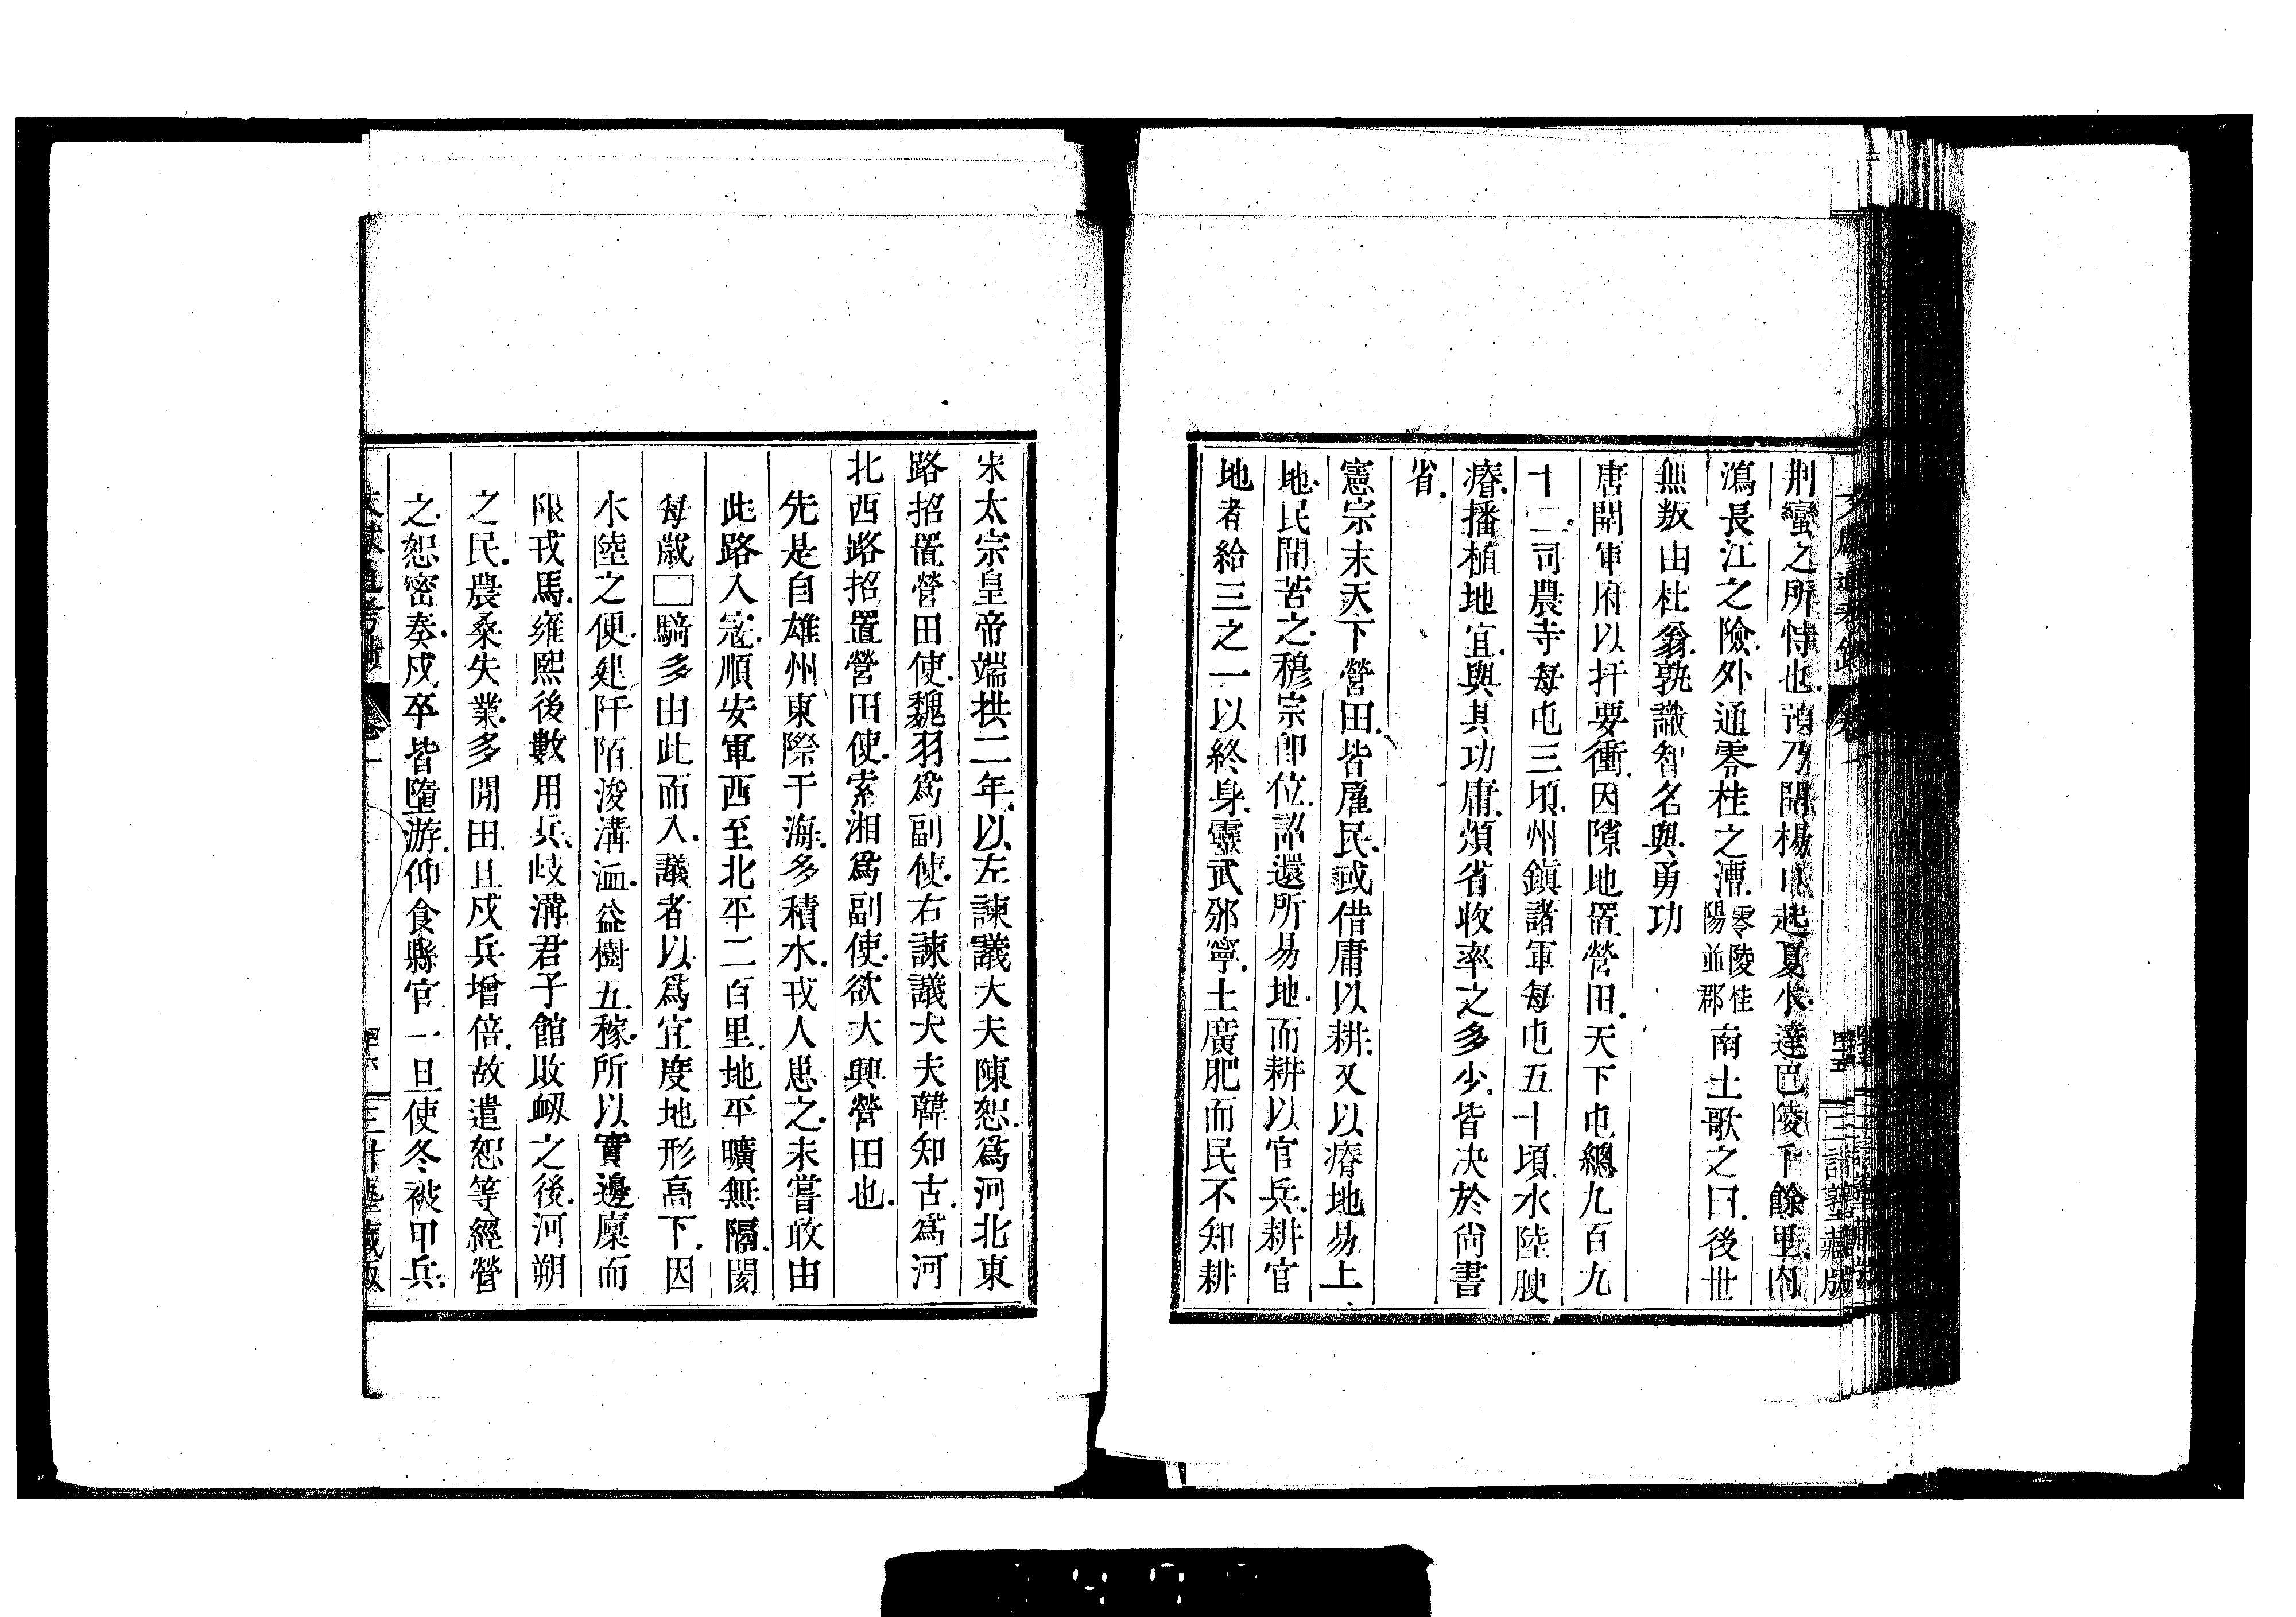 荆蠻之所恃也預乃開楊口起夏水達巴陵千餘里内
瀉長江之險外通零桂之漕零陵桂陽並郡南土歌之曰後世
無叛由杜翁孰識智名與勇功
唐開軍府以扞要衝因隙地置營田天下屯總九百九
十二司農寺每屯三頃州鎮諸軍每屯五十頃水陸腴
瘠播植地宜與其功庸煩省收率之多少皆决於尚書
省
憲宗末天下營田皆雇民或借庸以耕又以瘠地易上
地民間苦之穆宗卽位詔還所易地而耕以官兵耕官
地者給三之一以終身靈武邠寧土廣肥而民不知耕
宋太宗皇帝端拱二年以左諫議大夫陳恕爲河北東
路招置營田使魏羽爲副使右諫議大夫韓知古爲河
北西路招置營田使索湘爲副使欲大興營田也
先是自雄州東際于海多積水戎人患之未嘗敢由
此路入寇順安軍西至北平二百里地平曠無隔閡
每歲□騎多由此而入議者以爲宜度地形高下因
水陸之便建阡陌浚溝洫益樹五稼所以實邊廩而
限戎馬雍熙後數用兵岐溝君子館敗衂之後河朔
之民農桑失業多閒田且戍兵增倍故遣恕等經營
之恕密奏戍卒皆墮游仰食縣官一旦使冬被甲兵